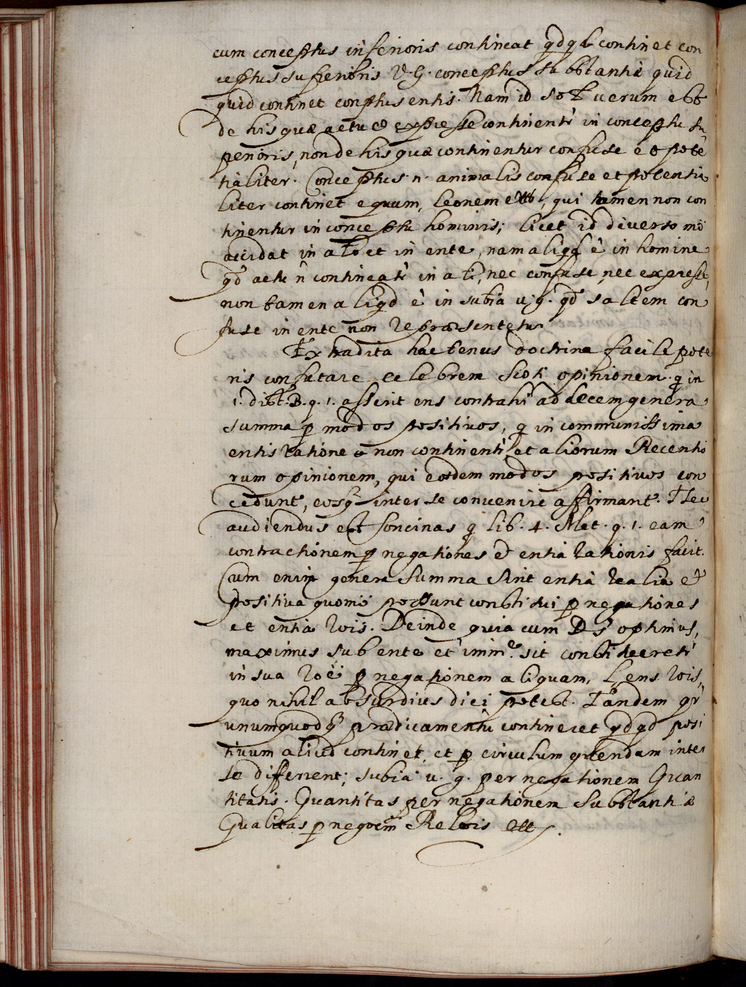 cum conceptus inferioris contineat qdqd continet con
ceptus superioris V.G. conceptus substantiæ quid
quid continet conptus entis. Nam id sol verum est
de his quæ actu et expresse continentr in conceptu su
perioris, non de his quæ continentur confuse et pote
tialiter. Conceptus n. animalis confuse et potentia
liter continet equum, leonem ett, qui tamen non con
tinentur in conceptu hominis; licet id diverso mo
accidat in a et in ente, nam aliqd è in homine
qd actu n contineatr in ali, nec confuse, nec expresse,
non tamen aliqd è in subia u.g. qd saltem con
fuse in ente non repræsentetur.
Ex tradita hactenus doctrina facile pote
ris confutare celebrem Scoti opinionem q in
1. dist. 8. q. 1. asserit ens contrahi ad decem genera
summa p modos positivos, q in communissima
entis ratione non continentr, et aliorum Recentio
rum opinionem, qui eosdem modos positivos con
cedunt, eosq inter se convenire affirmant. Nec
audiendus est Soncinas q lib. 4. Met. q. 1. eam
contractionem p negationes et entia rationis facit.
Cum enim genera summa sint entia realia et
positiva quomo possunt constitui p negationes
et entia rois. Deinde quia cum Ds optimus,
maximus sub ente et imm. sit constitueretr
in sua roe p negationem aliquam, l ens rois,
quo nihil absurdius dici potest. Tandem qr
unumquodq prædicamentu contineret qdqd posi
tivum aliud continet, et p circulum quendam inter
se different; subia u. g. per negationem Quan
titatis. Quantitas per negationem Substantiæ
Qualitas p negoem Relois ett.